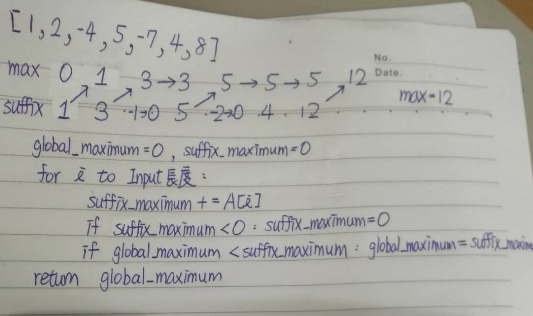 [1, 2, -4, 5, -7, 4, 8]
No.
Date.
max 0 1 3→3 5→5→5 12
max=12
suffix 1 3 -1→0 5 -2→0 4 12
global_maximum=0, suffix_maximum=0
for i to Input長度:
suffix_maximum += A[i]
if suffix_maximum<0: suffix_maximum=0
if global_maximum<suffix_maximum: global_maximum=suffix_maxim
return global_maximum